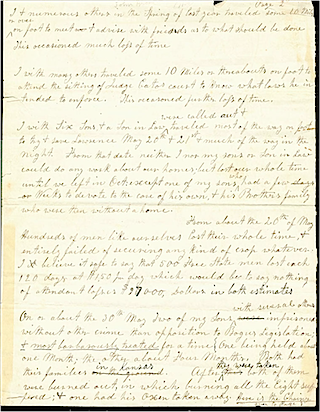 Page 2
I & numerous others in the Spring of last year traveled some 10 Miles
or over
on foot to meet & advise with friends as to what should be done
This occasioned much loss of time
I with many others traveled some 10 Miles or thereabouts on foot to
attend the sitting of Judge Catos court to know what laws he in
tended to enforce. This occasioned further loss of time.
were called out &
I with Six Sons & a Son in Law, traveled most of the way on foot
to try & save Lawrence May 20th & 21st & much of the way in the
night. From that date neither I nor my sons or Son in law
could do any work about our homes; but lost our whole time
until we left in Oct; except one of my sons, who had a few
or Weeks to devote to the care of his own, & his Brothers family
who were then without a home.
From about the 20th of May
Hundreds of men like ourselves lost their whole time, &
entirely failed of securing any kind of crop whatever.
I believe it safe to say that 500 Free State men lost each
120 days at $1,50 pr day which would be, to say nothing
of attendant losses $90,000, Dollars in both estimates
with several others
On or about the 30th May Two of my sons were imprisoned
without other crime than opposition to Bogus Legislation,
& most barbarously treated for a time; One being held about
one Month, the other about Four Months. Both had
their families in Kansas. After they were taken both of them
were burned out, in which burning all the Eight suf
fered; & one had his Oxen taken away. Here is the Chain